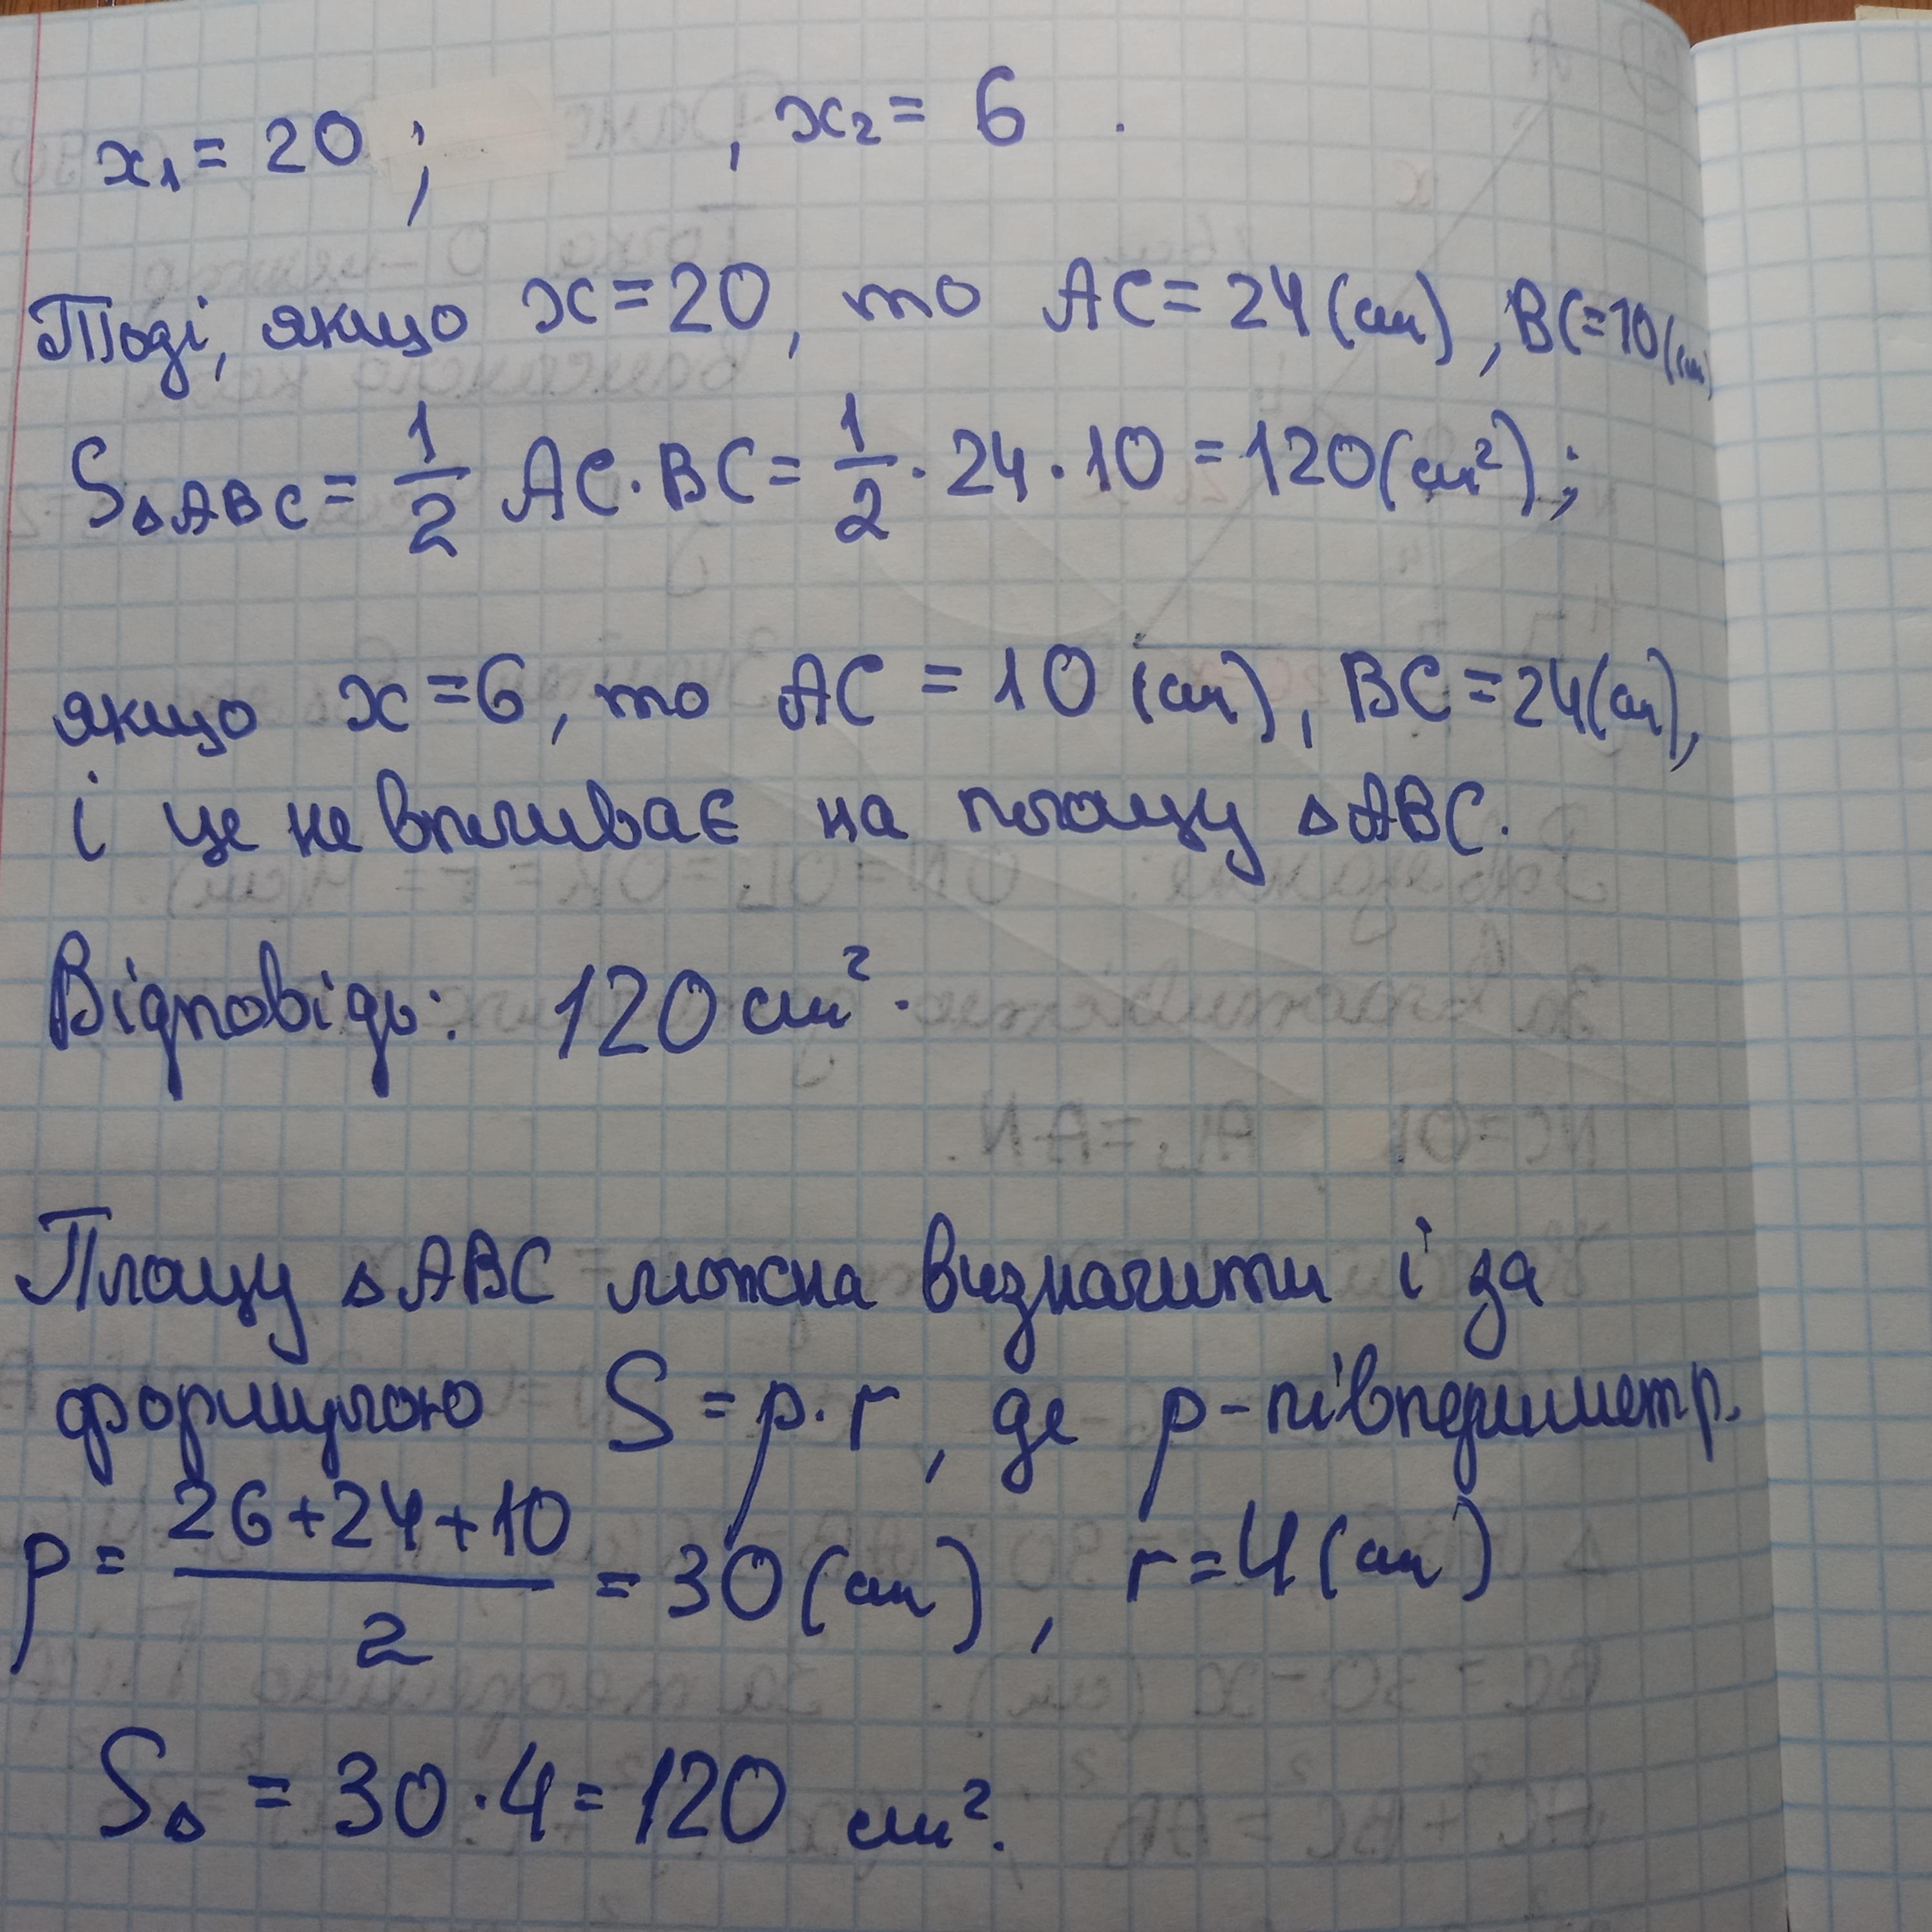 x₁ = 20 ; , x₂ = 6 .
Тоді, якщо x = 20, то AC = 24 (см), BC = 10 (см)
S△ABC = 1/2 AC · BC = 1/2 · 24 · 10 = 120 (см²) ;
якщо x = 6, то AC = 10 (см), BC = 24 (см),
і це не впливає на площу △ABC.
Відповідь: 120 см².
Площу △ABC можна визначити і за
формулою S = p · r, де p – півпериметр.
p = (26 + 24 + 10)/2 = 30 (см), r = 4 (см)
S△ = 30 · 4 = 120 см².